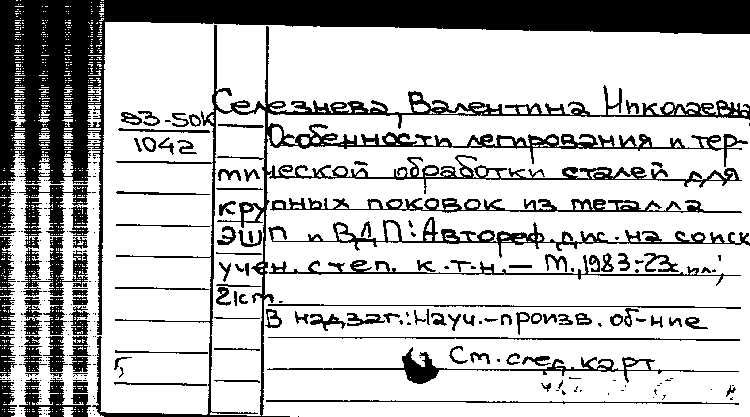 Селезнева, Валентина Николаевна
83-50К
1042
Особенности легирования и тер-
мической обработки сталей для
крупных поковок из металла
ЭШП и ВДП: Автореф. дис. на соиск.
учен. степ. к.т.н. — М., 1983.-23с. ил.;
21 см.
В надзаг.: Науч.-произв. об-ние
См. след. карт.